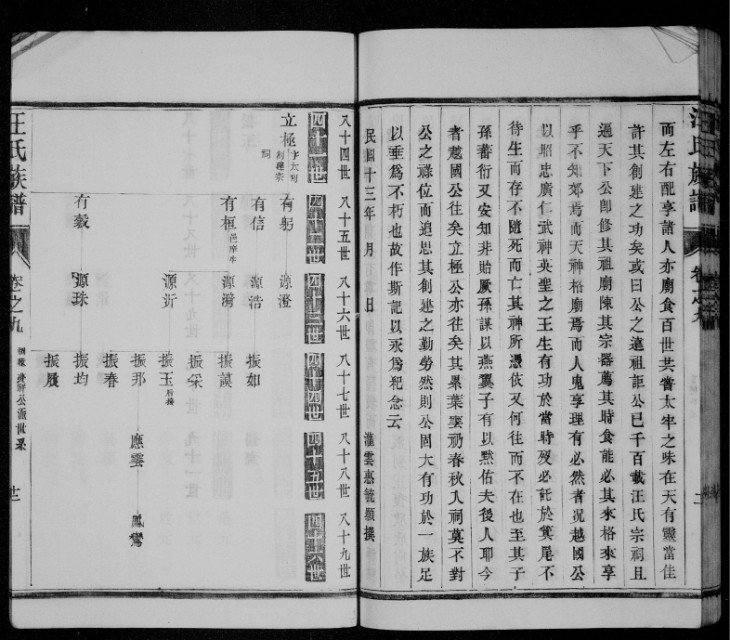 汪氏族譜
卷之九
而左右配享諸人亦廟食百世共嘗太牢之味在天有靈當佳
許其創建之功矣或曰公之遠祖詎公已千百載汪氏宗祠且
遍天下公卽修其祖廟陳其宗器薦其時食能必其來格來享
乎不知郊焉而天神格廟焉而人鬼享理有必然者况越國公
以昭忠廣仁武神英聖之王生有功於當時歿必託於箕尾不
待生而存不隨死而亡其神所憑依又何往而不在也至其子
孫蕃衍又安知非貽厥孫謀以燕翼子有以黙佑夫後人耶今
者越國公往矣立極公亦往矣其畢葉
春秋入祠莫不對
公之祿位而追思其創建之勤勞然則公固大有功於一族足
以垂爲不朽也故作斯記以
爲紀念云
民國十三年 月 日
雲惠毓顯撰
又十四世 又十五世 又十六世 又十七世 又十八世 又十九世
四十一世 四十二世 四十三世 四十四世 四十五世 四十六世
立極 有躬 源澄
有信 源浩 振如
有桓 源灣 振謨
振采
源沂 振玉
振邦 應雲 鳳鸞
振春
有穀 源珠 振均
振履
汪氏族譜
卷之九
公派世系